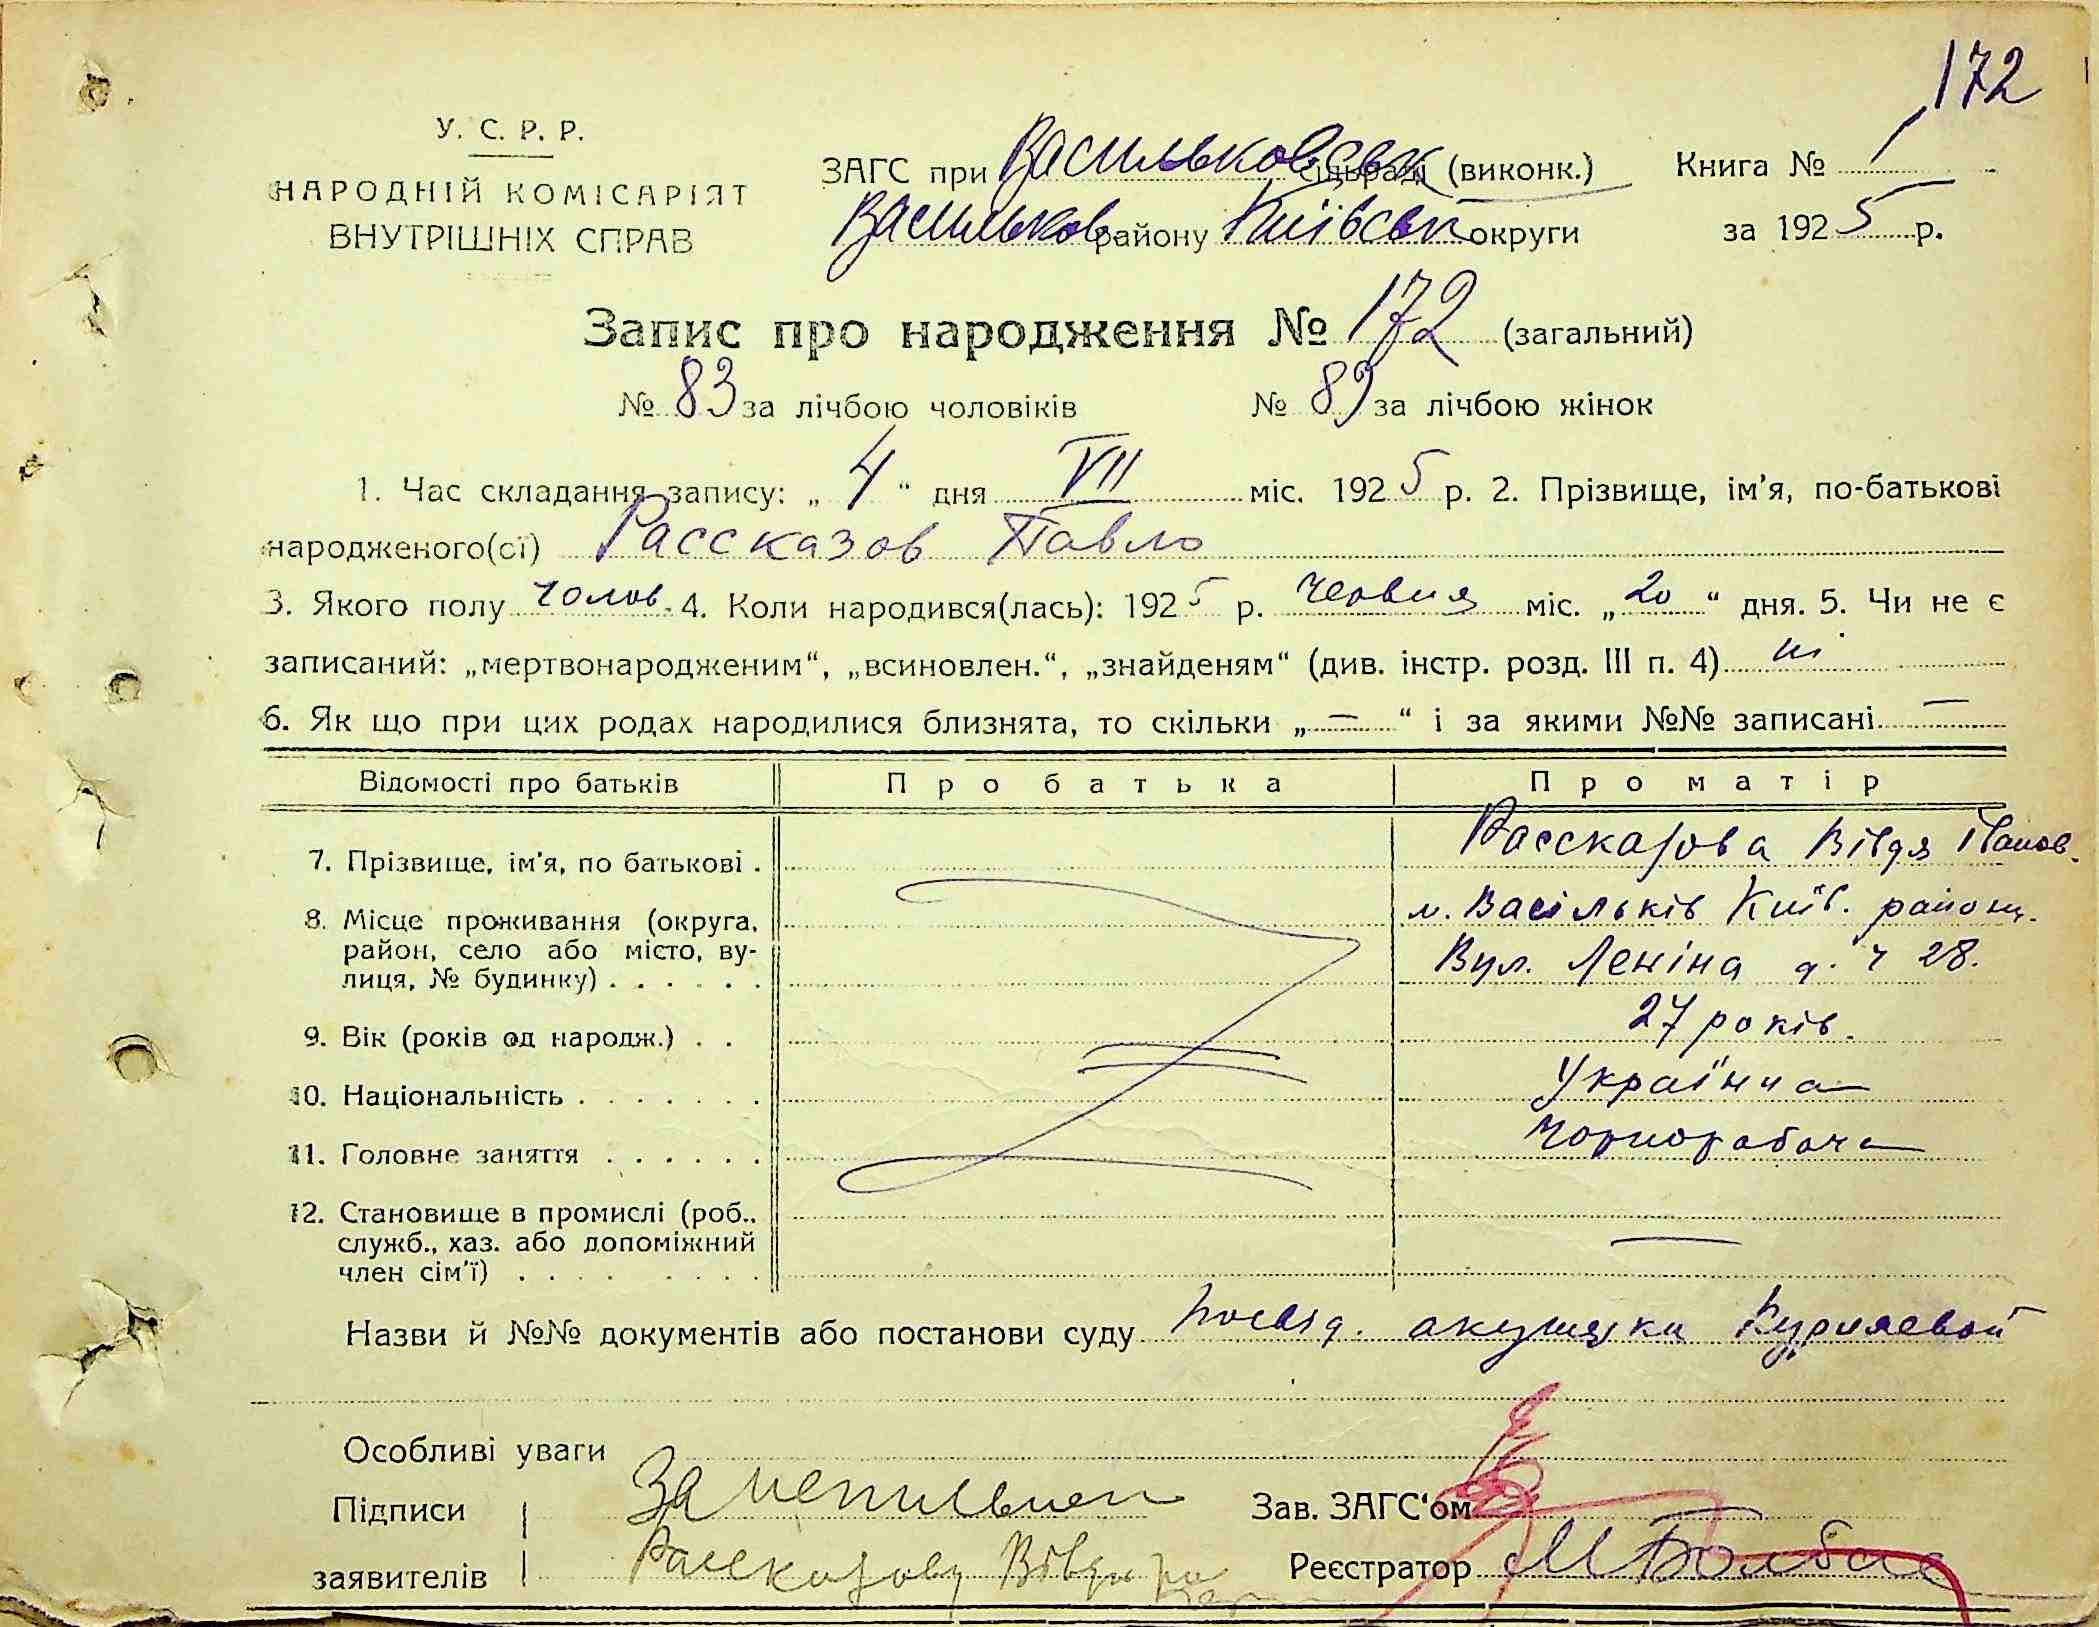 172
У. С. Р. Р.
НАРОДНІЙ КОМІСАРІЯТ
ВНУТРІШНІХ СПРАВ
ЗАГС при Васильковськ сільраді (виконк.)
Васильков. району Київськ округи
Книга № 1
за 1925 р.
Запис про народження № 172 (загальний)
№ 83 за лічбою чоловіків № 89 за лічбою жінок
1. Час складання запису: „ 4 “ дня VII міс. 1925 р. 2. Прізвище, ім'я, по-батькові
народженого(сї) Рассказов Павло
3. Якого полу чолов. 4. Коли народився(лась): 1925 р. червня міс. „ 20 “ дня. 5. Чи не є
записаний: „мертвонародженим“, „всиновлен.“, „знайденям“ (див. інстр. розд. III п. 4) ні
6. Як що при цих родах народилися близнята, то скільки „ — “ і за якими №№ записані —
Відомості про батьків Про батька Про матір
7. Прізвище, ім'я, по батькові . Рассказова Вівдя Іванов.
8. Місце проживання (округа, м. Васільків Київ. району.
район, село або місто, ву-
лиця, № будинку) . . . . . . Вул. Леніна д. ч 28.
9. Вік (років од народж.) . . 27 років.
10. Національність . . . . . . . Українча
11. Головне заняття . . . . . . Чорноробоча
12. Становище в промислі (роб.. —
служб., хаз. або допоміжний
член сім'ї) . . . . . . . .
Назви й №№ документів або постанови суду Посвід. акушерки
Особливі уваги
Підписи За неписьмен Зав. ЗАГС‘ом
заявителів Рассказову Вівдю Реєстратор М Болбас